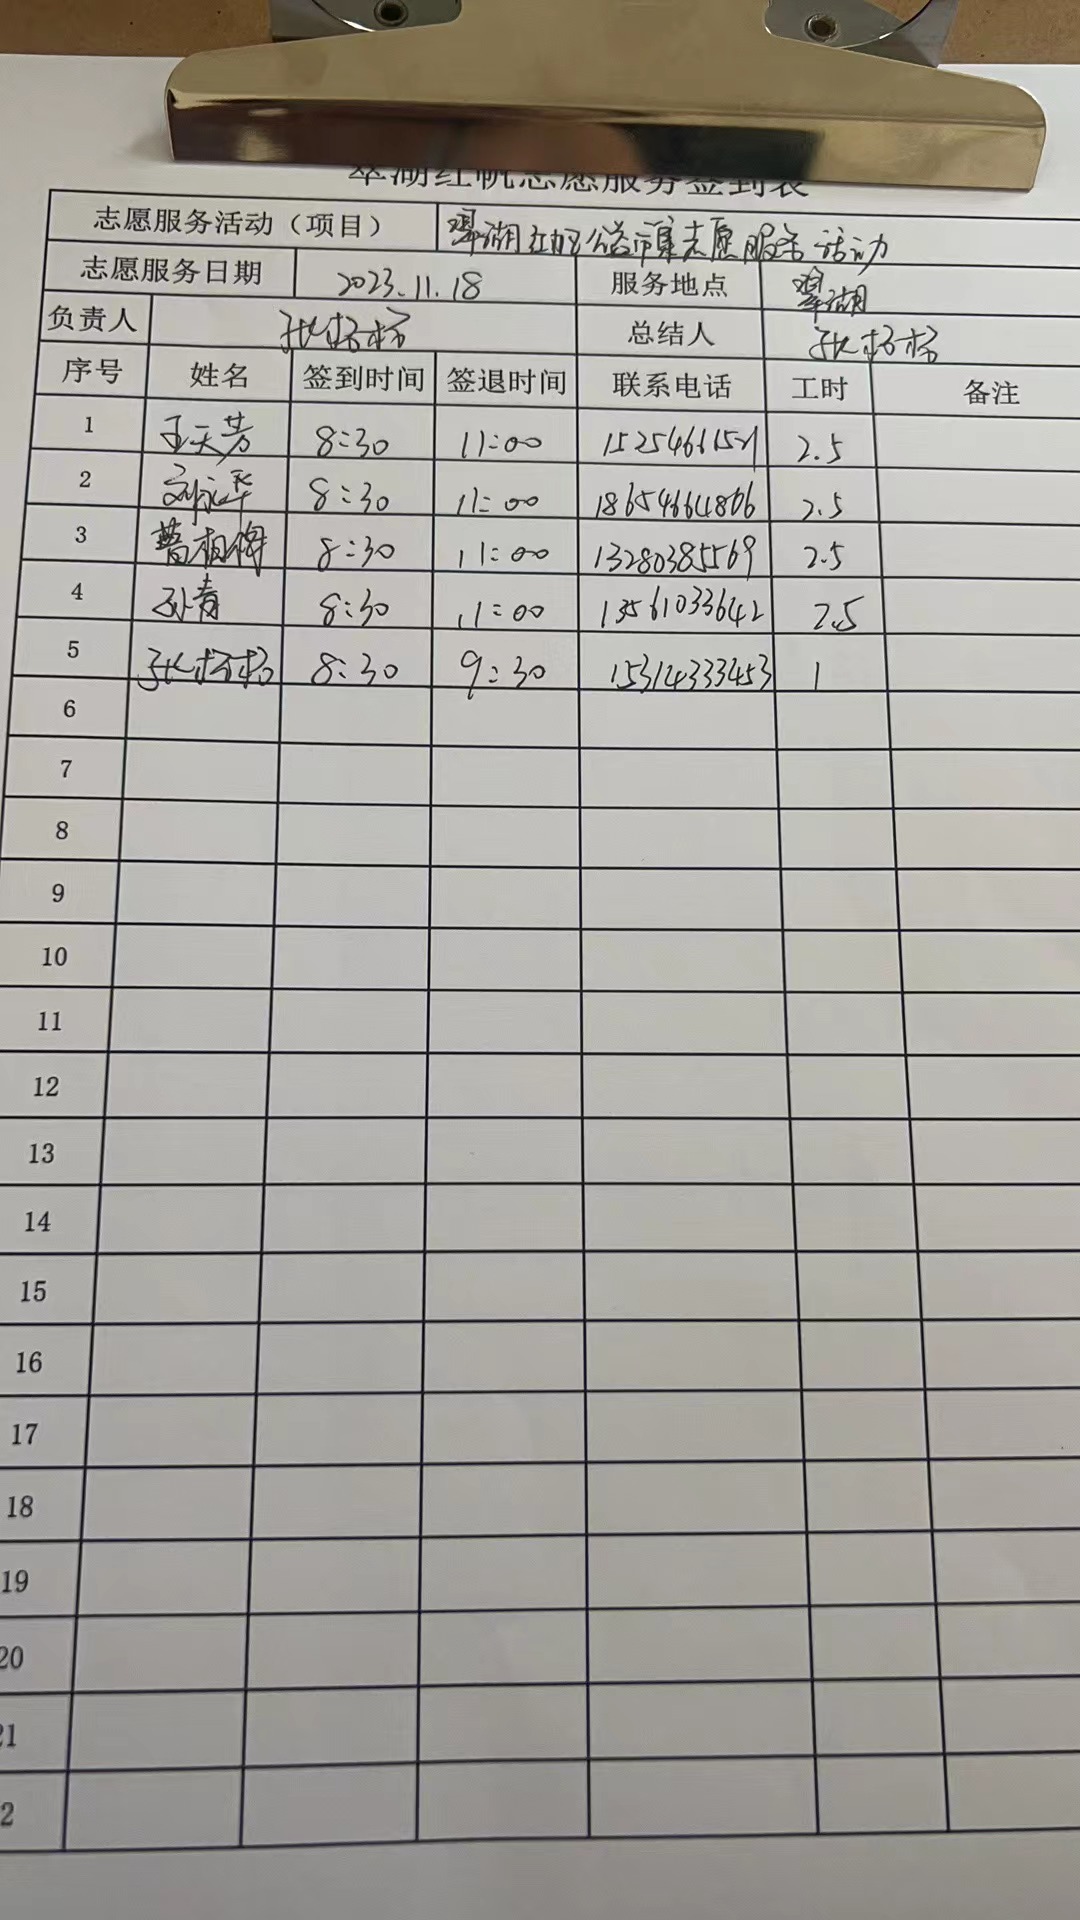 翠湖红帆志愿服务签到表
志愿服务活动（项目） 翠湖红帆公益市集志愿服务活动
志愿服务日期 2023.11.18 服务地点 翠湖
负责人 张杨杨 总结人 张杨杨
序号 姓名 签到时间 签退时间 联系电话 工时 备注
1 王天芳 8:30 11:00 2.5
2 刘永华 8:30 11:00 18654664806 2.5
3 曹相梅 8:30 11:00 13280385569 2.5
4 孙青 8:30 11:00 13561033642 2.5
5 张杨杨 8:30 9:30 15314333453 1
6
7
8
9
10
11
12
13
14
15
16
17
18
19
20
21
2